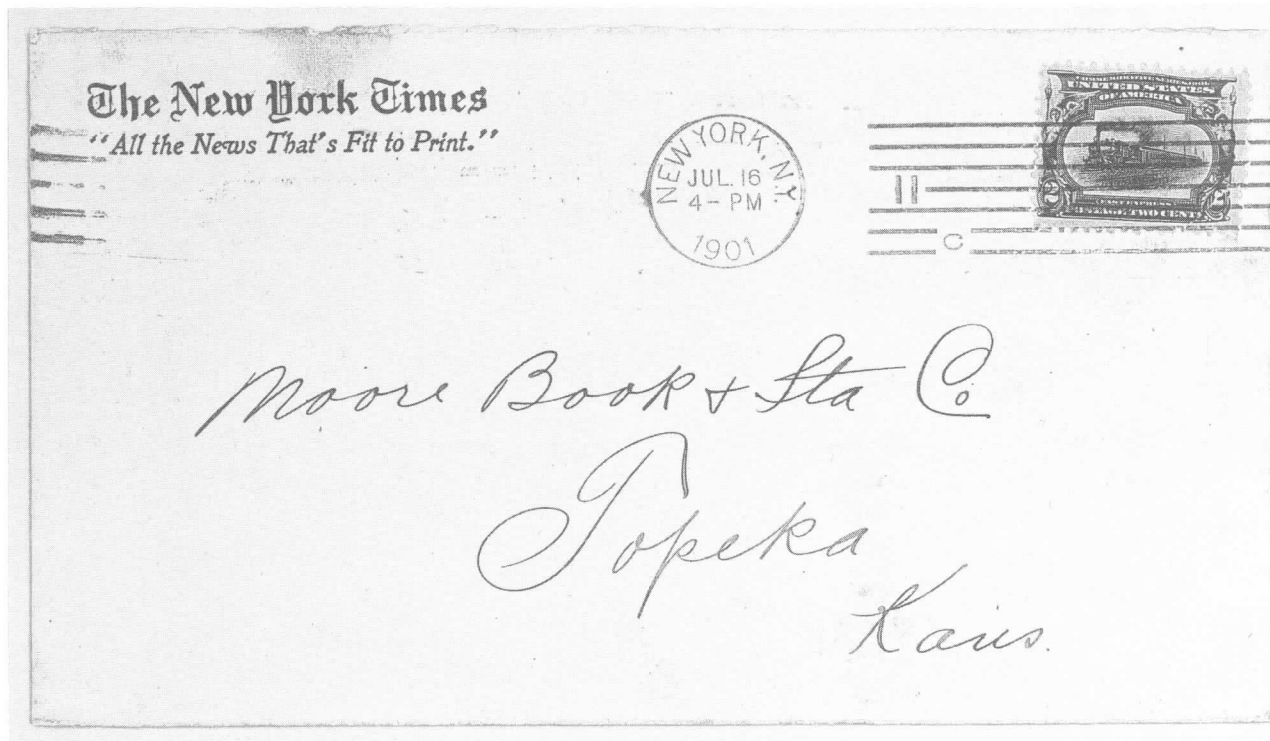 The New York Times
"All the News That's Fit to Print."
NEW YORK, N.Y.
JUL. 16
4 - PM
1901
II
C
UNITED STATES
OF AMERICA
2
2
POSTAGE, TWO CENTS
Moore Book & Sta Co.
Topeka
Kans.